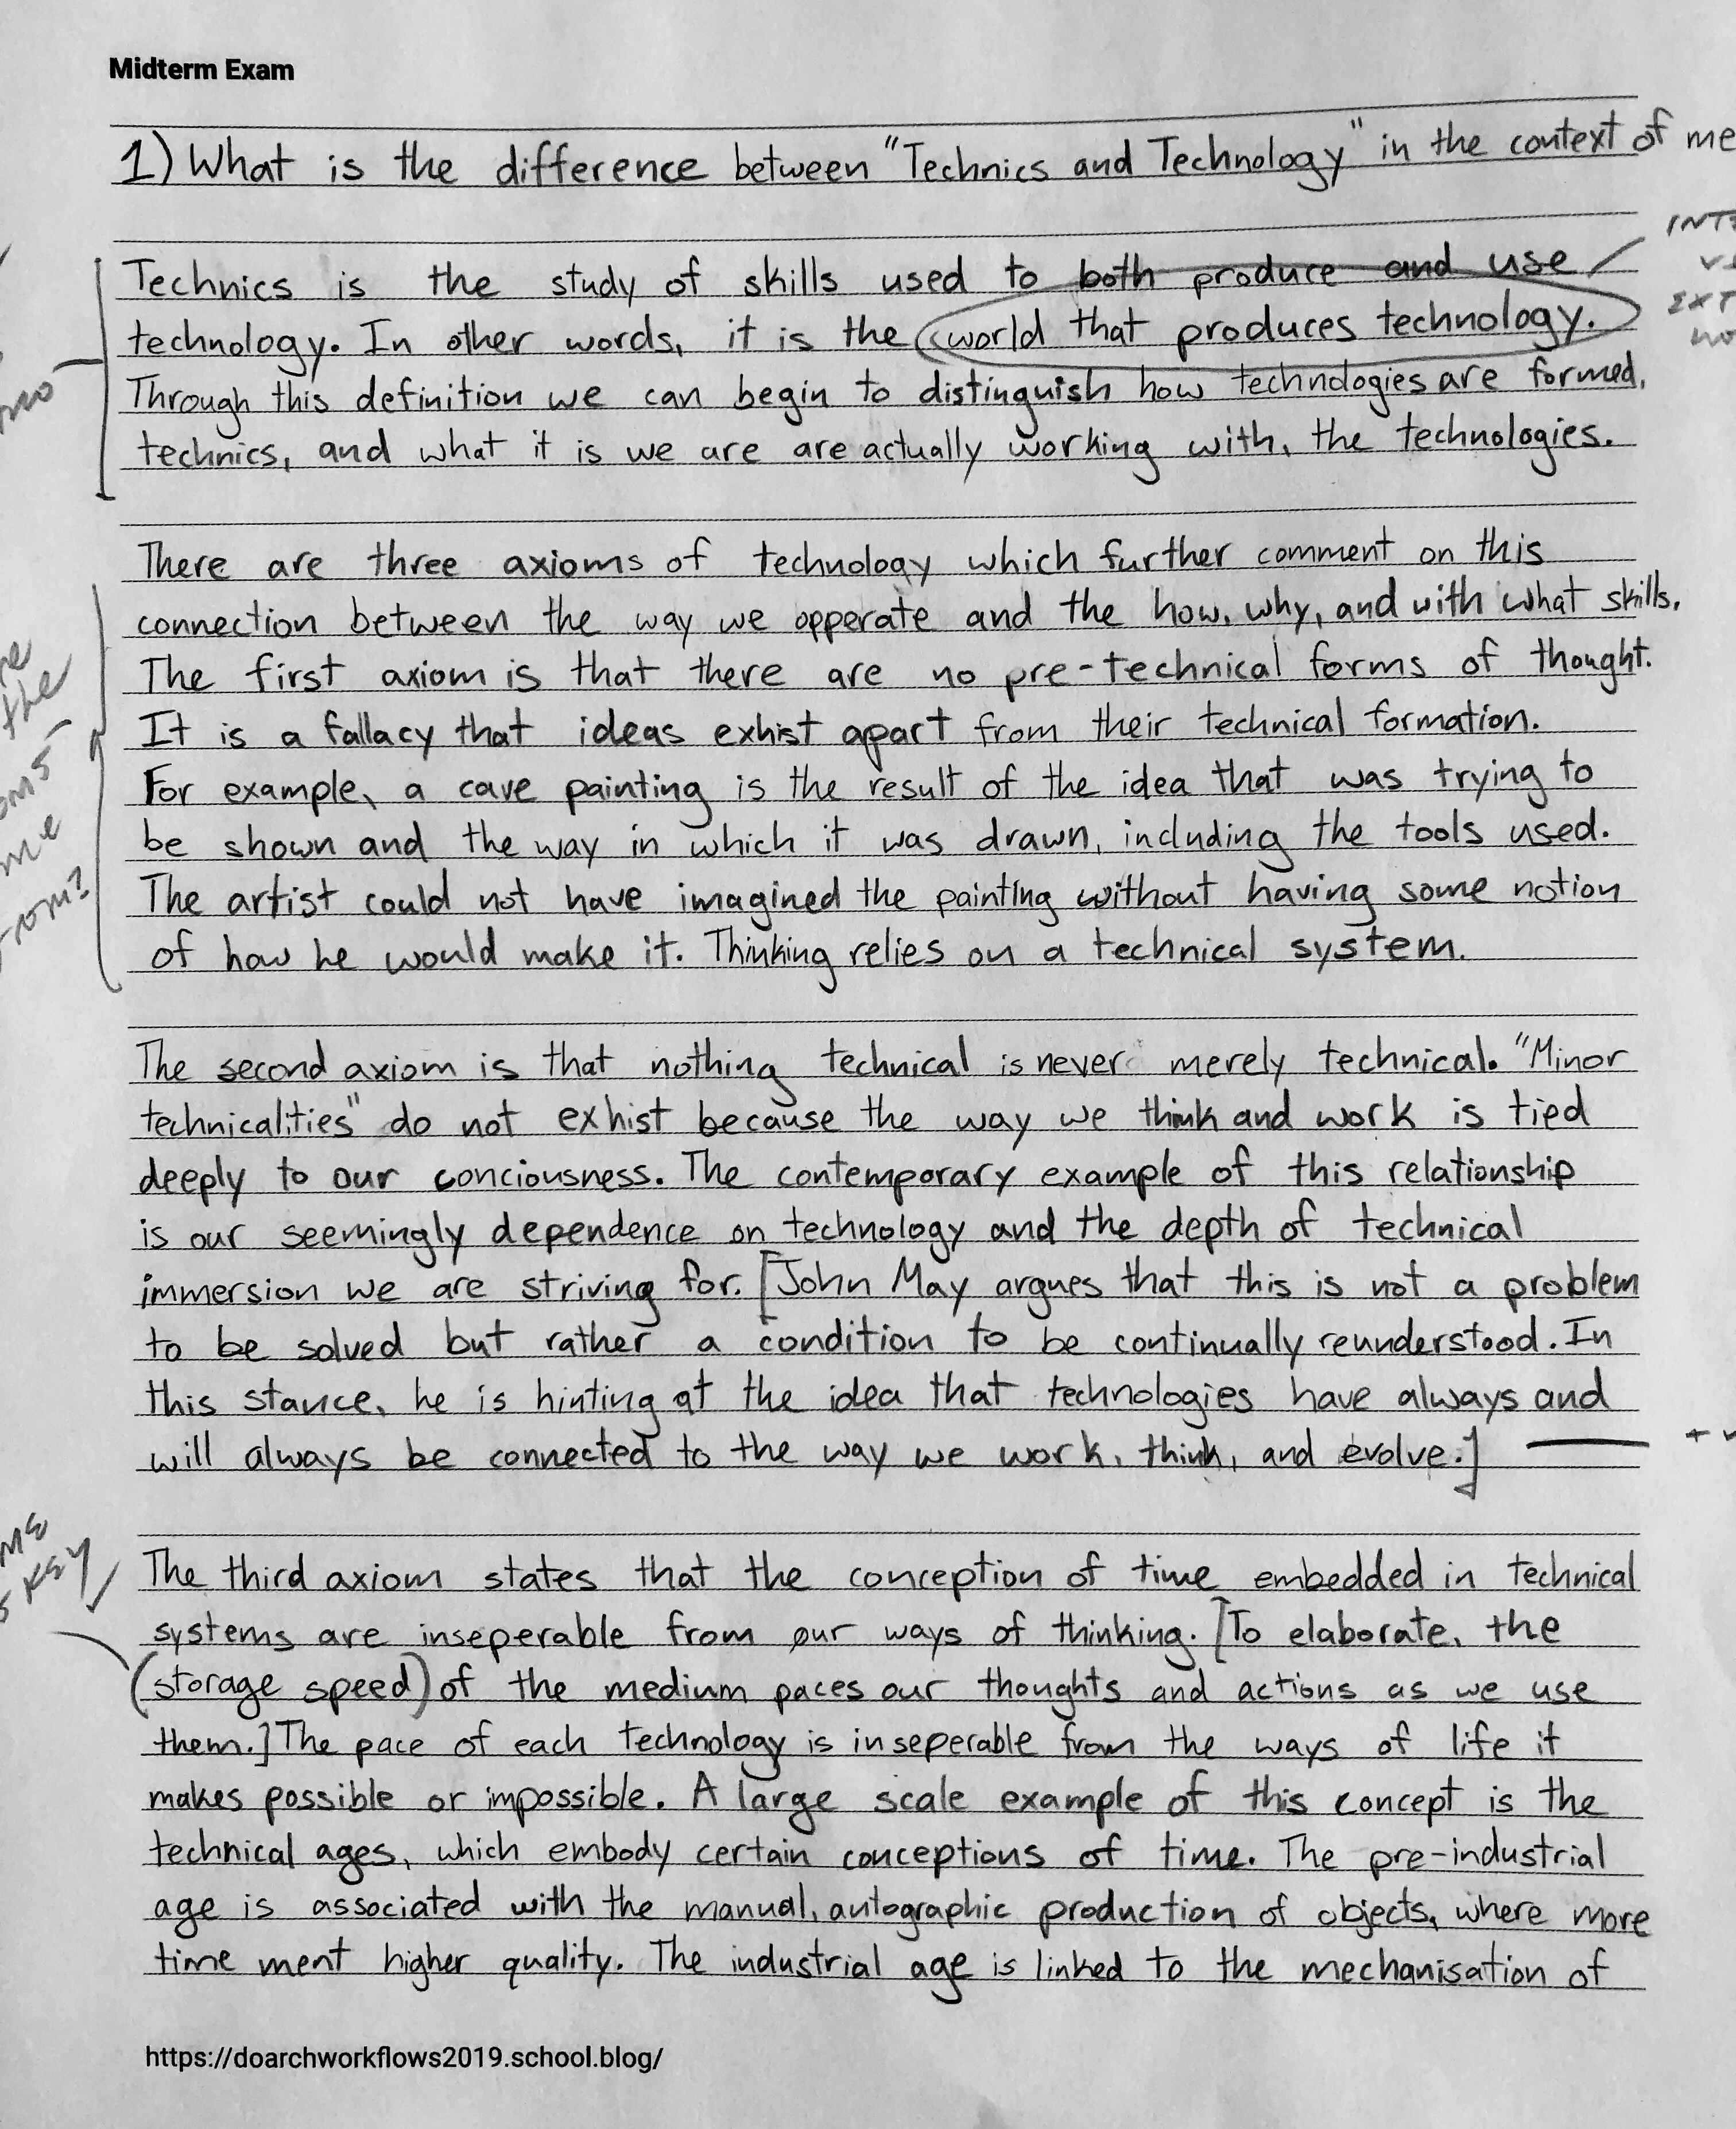 Midterm Exam
1) What is the difference between "Technics and Technology" in the context of me
INT
Technics is the study of skills used to both produce and use
technology. In other words, it is the (world that produces technology.
EXT
Through this definition we can begin to distinguish how technologies are formed,
technics, and what it is we are are actually working with, the technologies.
There are three axioms of technology which further comment on this
connection between the way we opperate and the how, why, and with what skills.
The first axiom is that there are no pre-technical forms of thought.
the
It is a fallacy that ideas exhist apart from their technical formation.
For example, a cave painting is the result of the idea that was trying to
be shown and the way in which it was drawn, including the tools used.
The artist could not have imagined the painting without having some notion
of how he would make it. Thinking relies on a technical system.
The second axiom is that nothing technical is never merely technical. "Minor
technicalities" do not exhist because the way we think and work is tied
deeply to our conciousness. The contemporary example of this relationship
is our seemingly dependence on technology and the depth of technical
immersion we are striving for. [John May argues that this is not a problem
to be solved but rather a condition to be continually reunderstood. In
this stance, he is hinting at the idea that technologies have always and
will always be connected to the way we work, think, and evolve.]
KEY
The third axiom states that the conception of time embedded in technical
systems are inseperable from our ways of thinking. [To elaborate, the
(storage speed) of the medium paces our thoughts and actions as we use
them.] The pace of each technology is inseperable from the ways of life it
makes possible or impossible. A large scale example of this concept is the
technical ages, which embody certain conceptions of time. The pre-industrial
age is associated with the manual, autographic production of objects, where more
time ment higher quality. The industrial age is linked to the mechanisation of
https://doarchworkflows2019.school.blog/